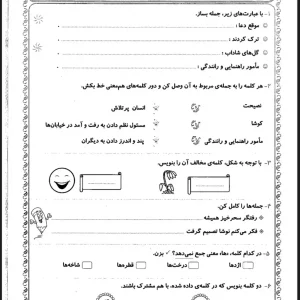 ۱- با عبارت‌های زیر، جمله بساز.
موقع دعا :
ترک کردند :
گل‌های شاداب :
مأمور راهنمایی و رانندگی :
۲- هر کلمه را به جمله‌ی مربوط به آن وصل کن و دور کلمه‌های هم‌معنی خط بکش.
نصیحت
انسان پرتلاش
کوشا
مسئول نظم دادن به رفت و آمد در خیابان‌ها
مأمور راهنمایی و رانندگی
پند و اندرز دادن به دیگران
۳- با توجه به شکل، کلمه‌ی مخالف آن را بنویس.
۴- جمله‌ها را کامل کن.
رفتگر سحرخیز همیشه
فکر می‌کنم نوشا تصمیم گرفت
۵- در کدام کلمه، «ها» معنی جمع نمی‌دهد؟ ✓ بزن.
اژدها
درخت‌ها
قطره‌ها
شاخه‌ها
۶- دو کلمه بنویس که در کلمه‌ی داده شده، با هم مشترک باشند.